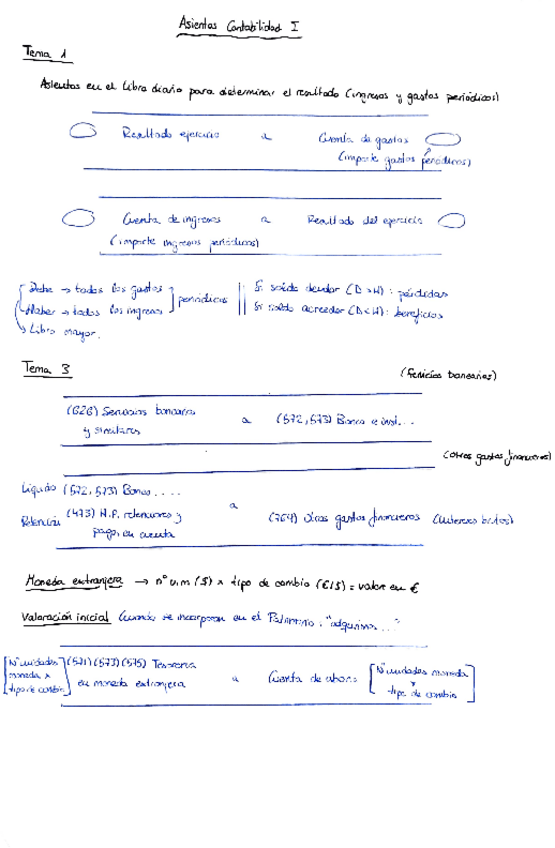 Asientos Contabilidad I
Tema 1
Asientos en el libro diario para determinar el resultado (ingresos y gastos periódicos)
Resultado ejercicio a Cuenta de gastos
(importe gastos periódicos)
Cuenta de ingresos a Resultado del ejercicio
(importe ingresos periódicos)
Debe → todos los gastos
Haber → todos los ingresos
periódicos
Libro mayor.
Si saldo deudor (D>H): pérdidas
Si saldo acreedor (D<H): beneficios
Tema 3
(Servicios bancarios)
(626) Servicios bancarios
y similares
a (572, 573) Banco e inst...
(Otros gastos financieros)
Líquido (572, 573) Banco....
Retención (473) H.P. retenciones y
pagos en cuenta
a (769) Otros gastos financieros (Intereses brutos)
Moneda extranjera → nº u.m ($) x tipo de cambio (€/$) = valor en €
Valoración inicial Cuando se incorporan en el Patrimonio: "adquirimos..."
[Nº unidades
moneda x
tipo de cambio]
(571) (573) (575) Tesorería
en moneda extranjera
a Cuenta de abono
[Nº unidades moneda
x
tipo de cambio]